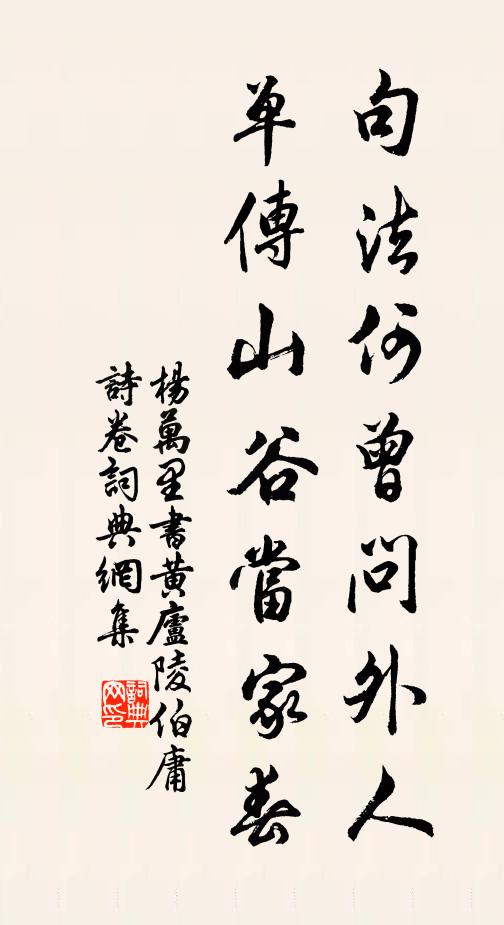 句法何曾問外人
單傳山谷當家春
楊萬里書黃廬陵伯庸
詩卷詞典網集
詞典
网印